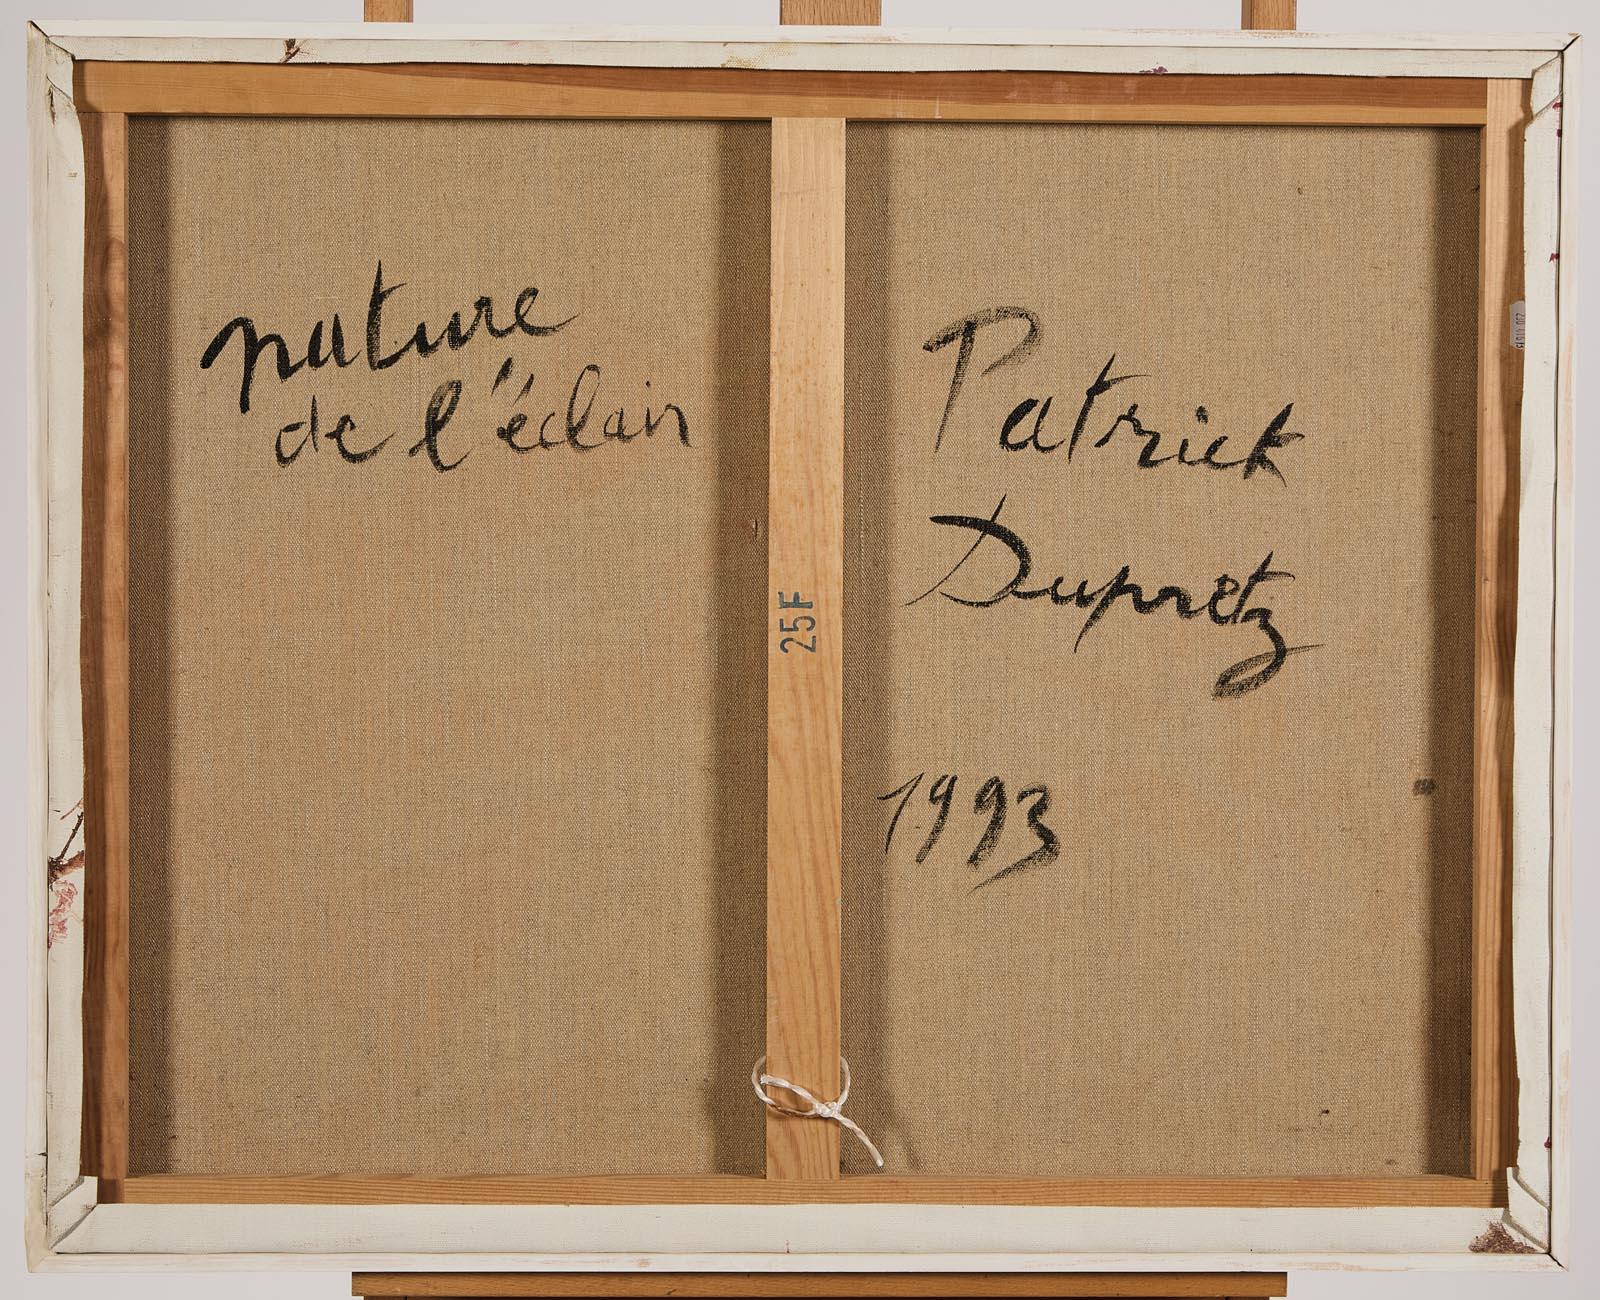 nature
de l'éclair
Patrick
Dupretz
1993
25F